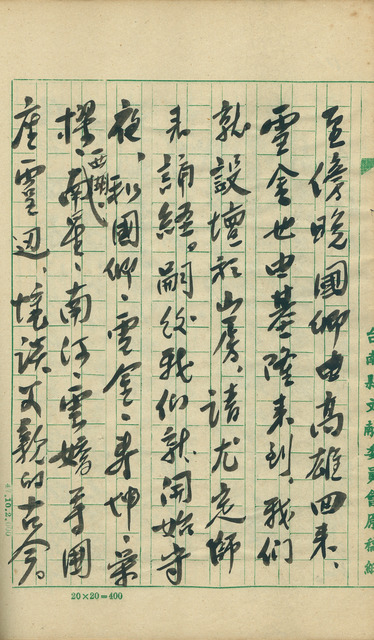 至傍晚國卿由高雄回來、
雪舍也由基隆來到、我們
就設壇於山房、請尤老師
來誦經。嗣後我們就開始守
夜、和國卿、雪舍、寿坤、荣
樑、南星、南河、雲嬌等圍
座靈边、憶談父親的古今。
台南縣文献委員會原稿紙
20×20=400